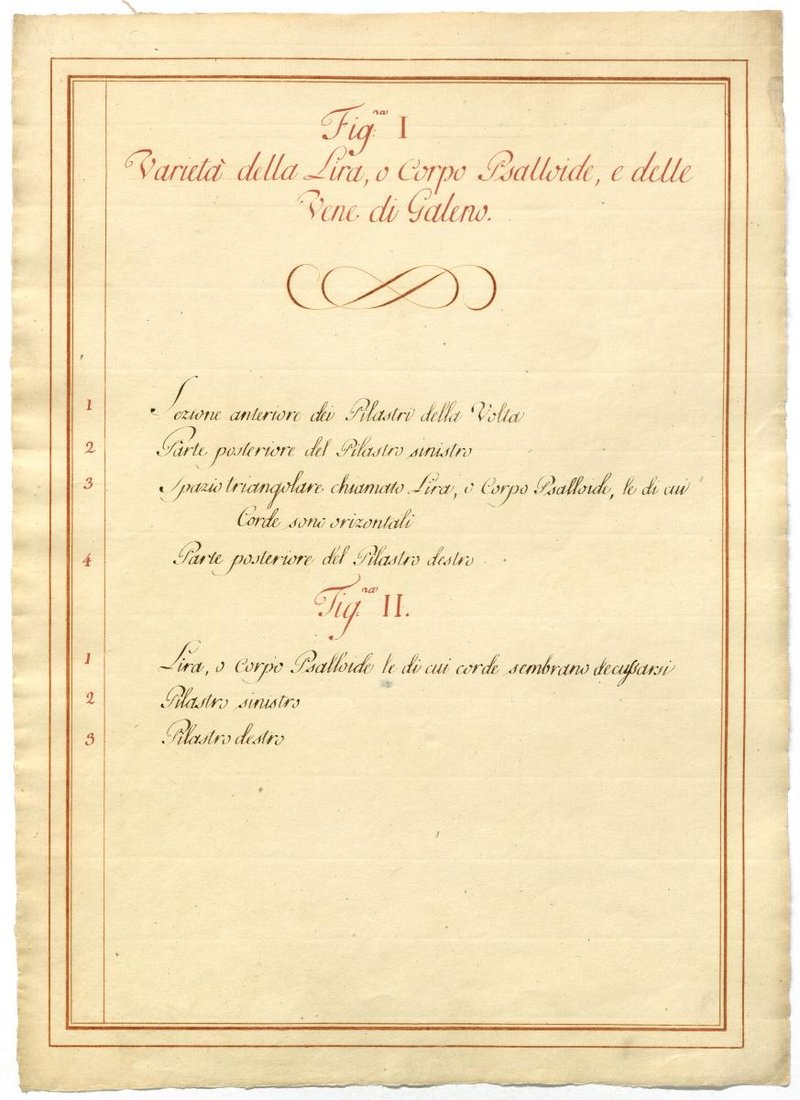 Fig.ra I
Varietà della Lira, o Corpo Psalloide, e delle
Vene di Galeno.
1 Sezione anteriore dei Pilastri della Volta
2 Parte posteriore del Pilastro sinistro
3 Spazio triangolare chiamato Lira, o Corpo Psalloide, le di cui
Corde sono orizontali
4 Parte posteriore del Pilastro destro
Fig.ra II.
1 Lira, o Corpo Psalloide le di cui corde sembrano decussarsi
2 Pilastro sinistro
3 Pilastro destro